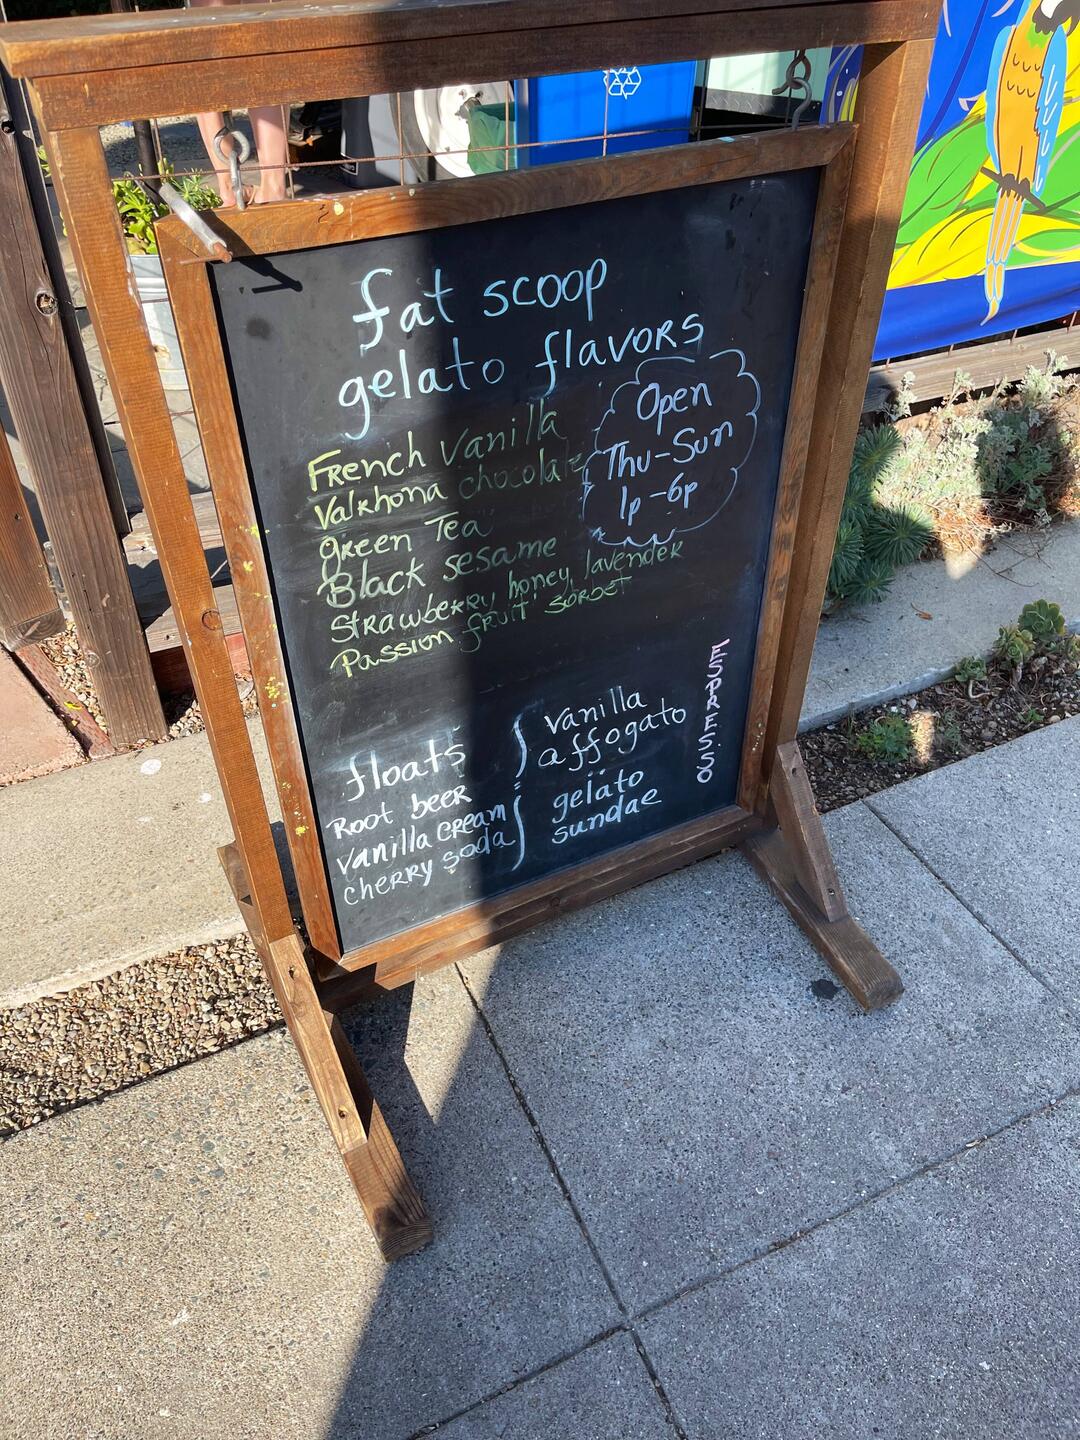 fat scoop
gelato flavors
French Vanilla
Valrhona chocolate
green Tea
Black sesame
Strawberry honey lavender
Passion fruit sorbet
Open
Thu-Sun
1p-6p
floats
Root beer
vanilla cream
cherry soda
vanilla
affogato
gelato
sundae
ESPRESSO